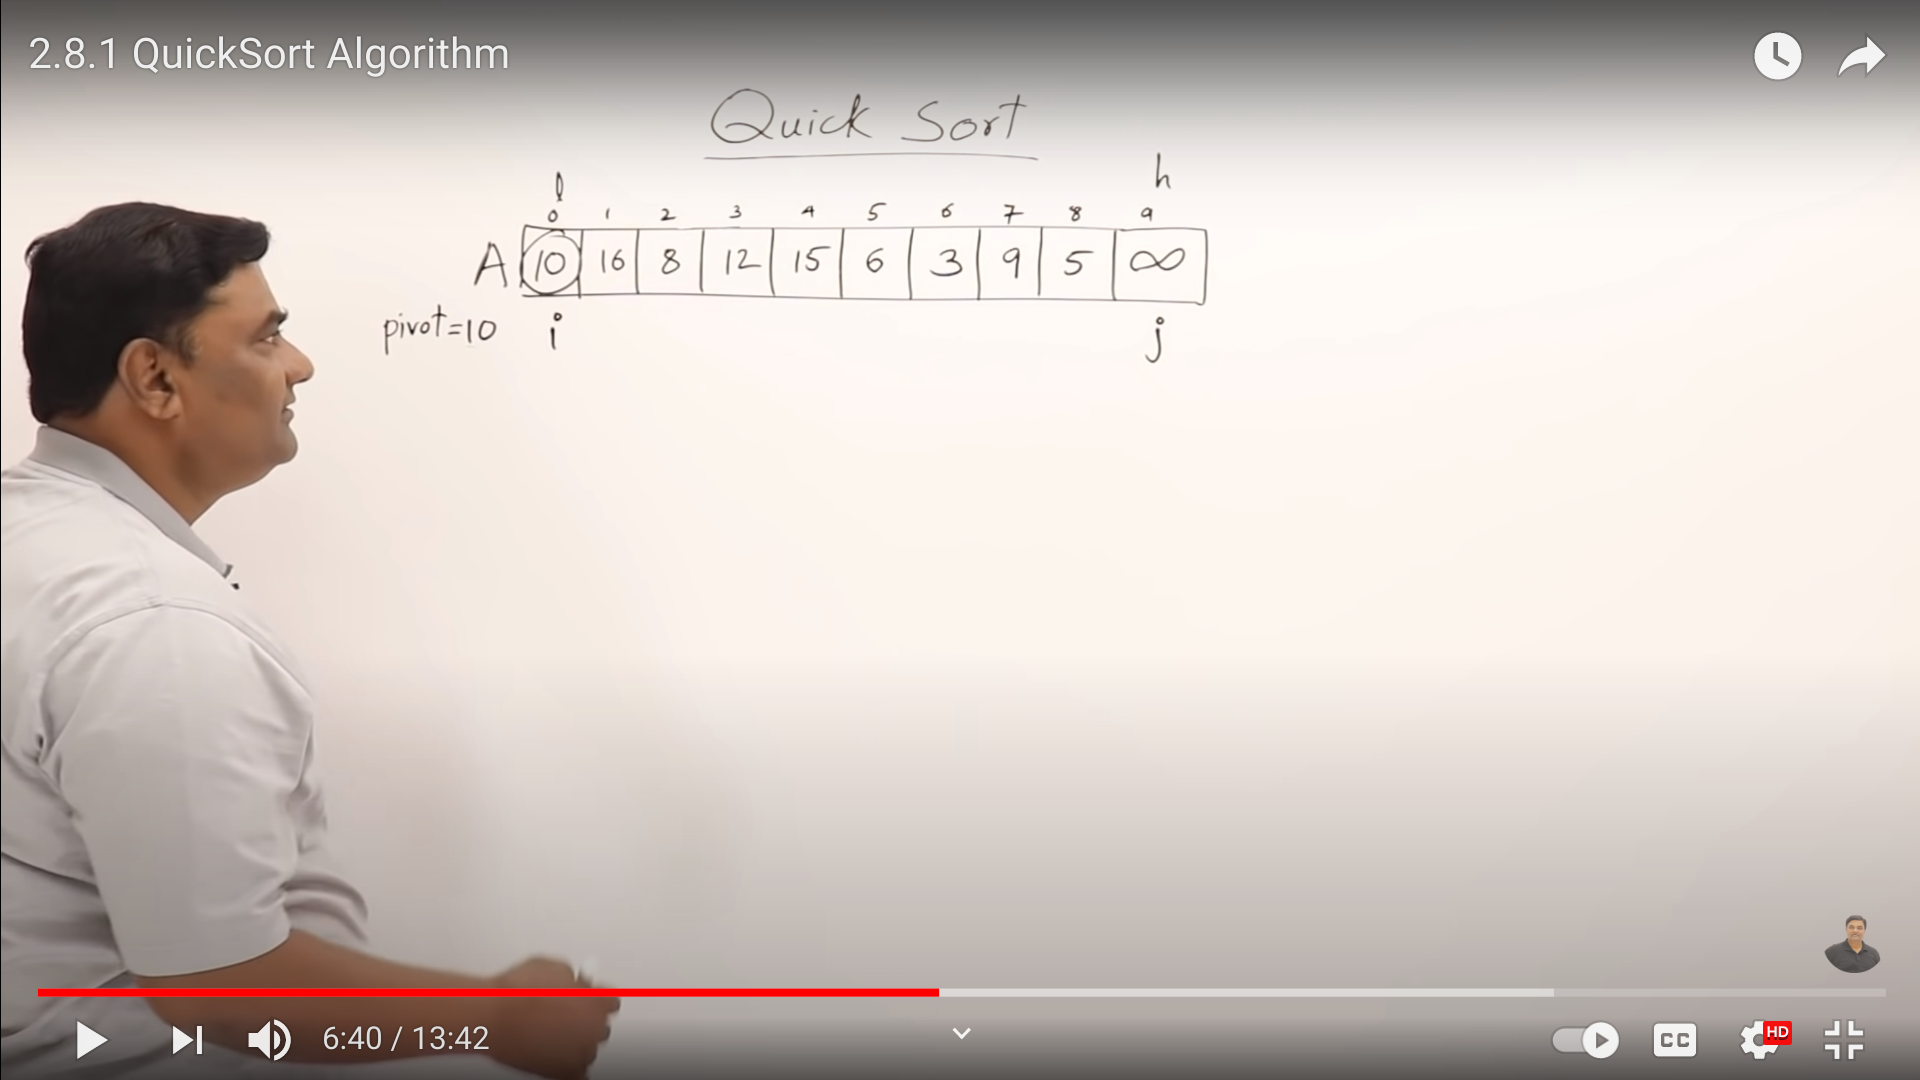 2.8.1 QuickSort Algorithm
Quick Sort
l h
0 1 2 3 4 5 6 7 8 9
A 10 16 8 12 15 6 3 9 5 ∞
pivot=10 i j
6:40 / 13:42
CC HD